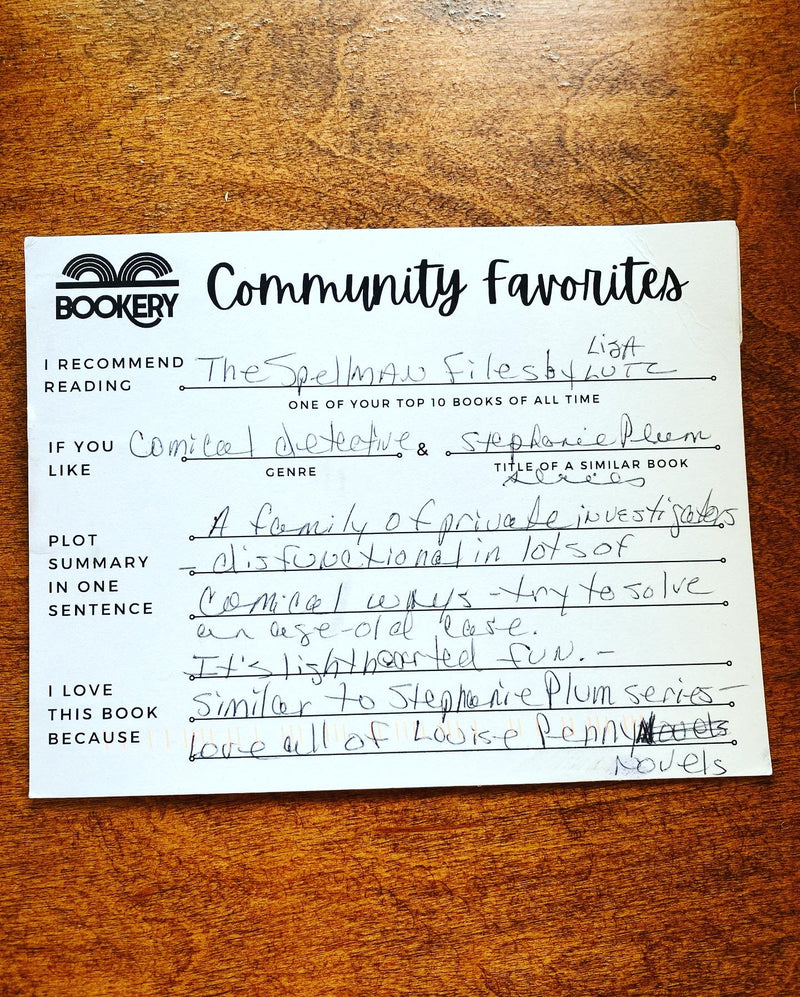 BOOKERY
Community Favorites
I RECOMMEND READING
The Spellman Files by Lisa Lutz
ONE OF YOUR TOP 10 BOOKS OF ALL TIME
IF YOU LIKE
Comical detective & Stephanie Plum series
GENRE
TITLE OF A SIMILAR BOOK
PLOT SUMMARY IN ONE SENTENCE
A family of private investigators
- disfunctional in lots of
Comical ways - try to solve
an age-old case.
I LOVE THIS BOOK BECAUSE
It's lighthearted fun. -
Similar to Stephanie Plum series -
Love all of Louise Penny
Novels